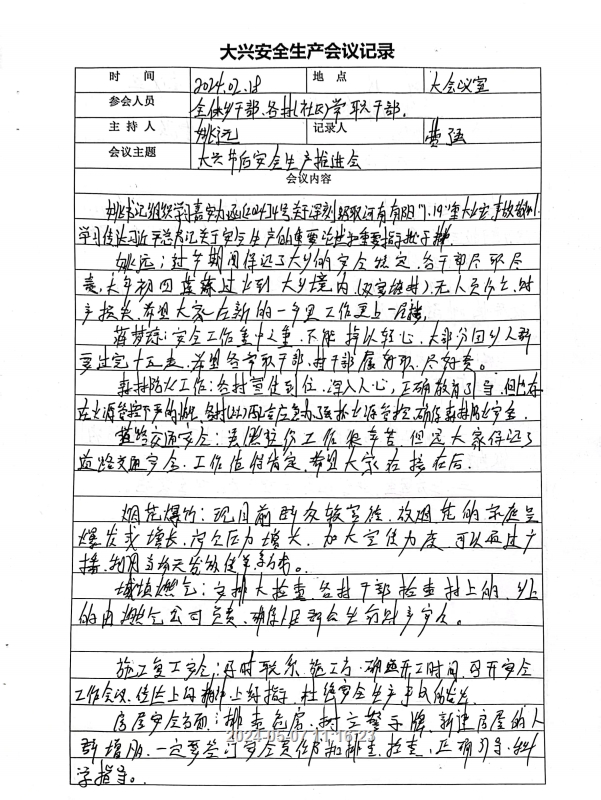 大兴安全生产会议记录
时 间 2024.02.18 地 点 大会议室
参会人员 全体乡干部、各村(社区)常职干部.
主 持 人 姚远 记录人 曹强
会议主题 大兴节后安全生产推进会
会议内容
姚书记组织学习 [2024]4号关于深刻汲取河南南阳"1.19"重大火灾事故教训
学习传达习近平总书记关于安全生产的重要论述和重要指示批示精
姚远:过年期间保证了大乡的安全稳定,各干部尽职尽
责,大年初四 到大乡境内 ,无人员伤亡,财
产损失,希望大家在新的一年里工作更上一层楼
蒋梦琼:安全工作重中之重,不能掉以轻心,大部分回乡人群
要过完十五走,希望各常职干部,村干部履好职、尽好责。
森林防火工作:各村宣传到位,深入人心,正确教育引导,但
火源管控 确保森林防火安全
道路交通安全: 工作很辛苦,但是大家保证了
道路交通安全,工作值得肯定,希望大家再接再厉。
烟花爆竹:现目前群众较富裕,放烟花的家庭呈
爆发式增长,安全压力增长,加大宣传力度,可以通过广
播,利用 宣传等形式。
城镇燃气:安排大检查,各村干部检查村上的,乡上
的由燃气公司负责,确保人民群众生命财产安全。
施工复工安全:及时联系施工方,确定开工时间,召开安全
工作会议,传达上级精神,上级指示,杜绝安全生产事故的发生
房屋安全方面:排查危房,树立警示牌,新建房屋的人
群增加,一定要签订安全责任书和排查、检查,正确引导、科
学指导。
2024-05-07 11:16:23